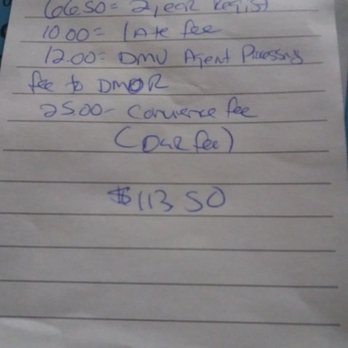 66.50= 2 year Regist
10.00= Late fee
12.00= DMV Agent Processing
fee to DMOR
25.00- Convience fee
(Our fee)
$113.50